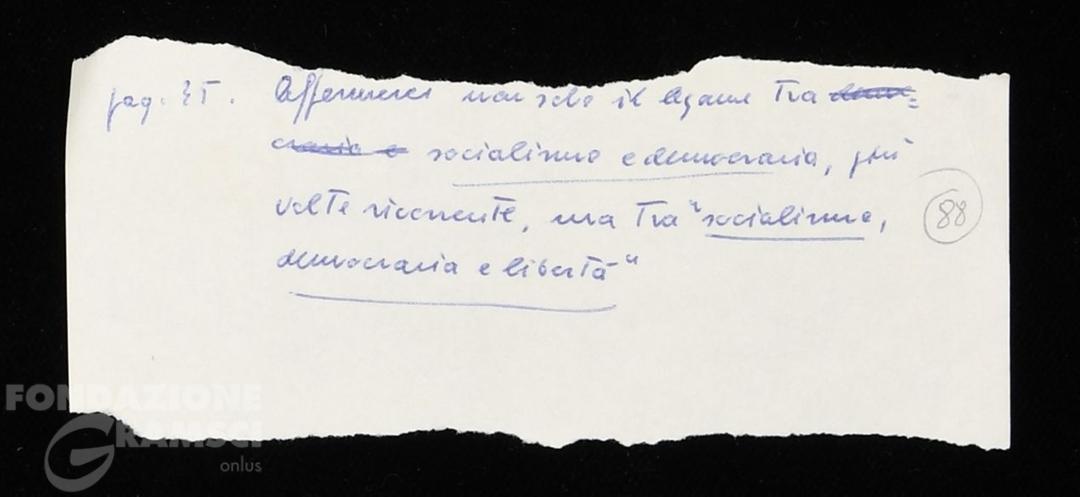 pag. 35. Affermerei non solo il legame tra demo=
crazia e socialismo e democrazia, più
volte ricorrente, ma tra "socialismo,
democrazia e libertà"
88
FONDAZIONE
GRAMSCI
onlus